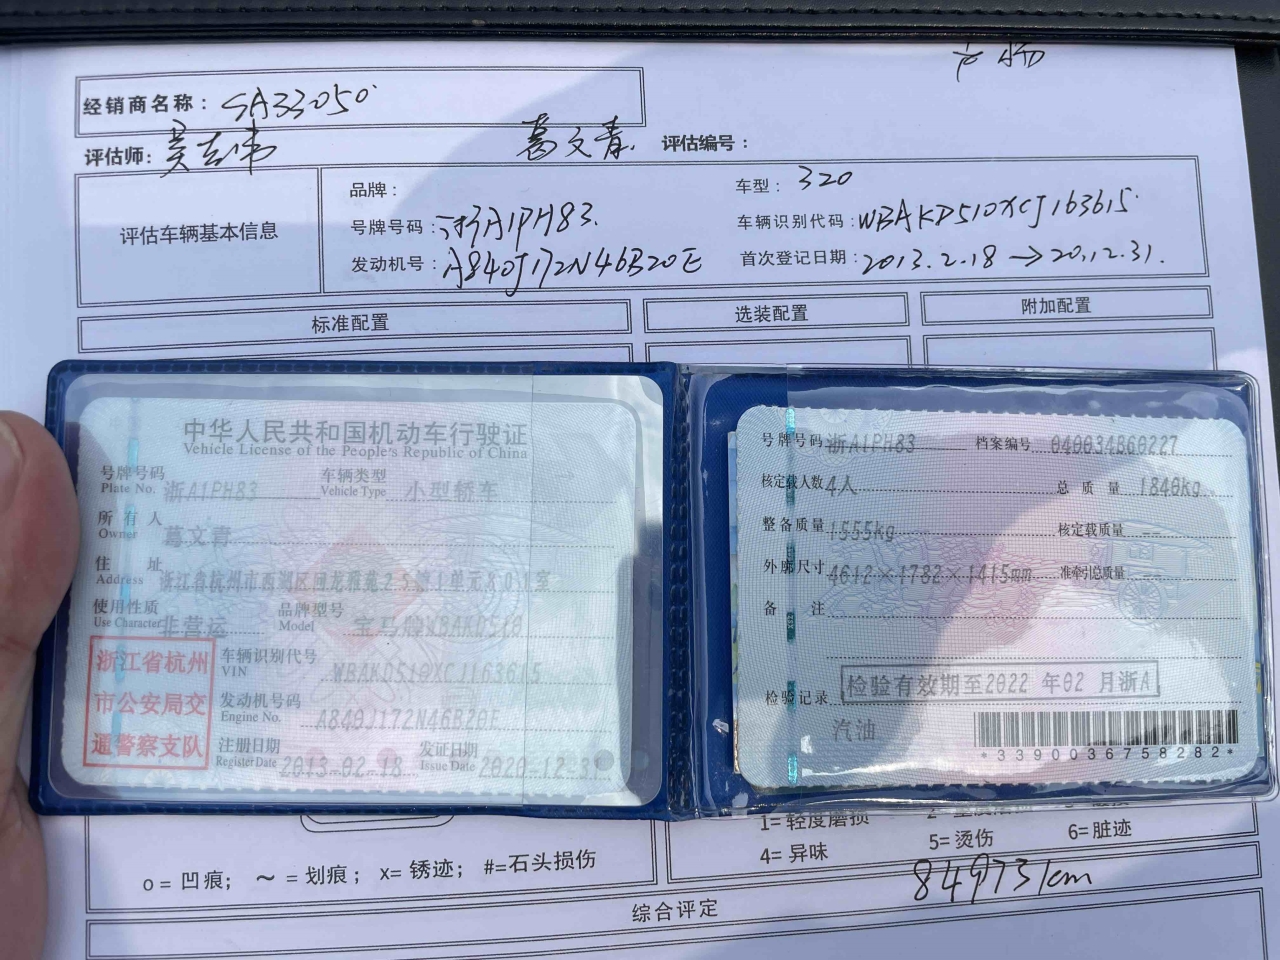 经销商名称：SA33050
评估师：吴志伟 葛文青 评估编号：
评估车辆基本信息
品牌： 车型：320
号牌号码：浙A1PH83 车辆识别代码：WBAKD510XCJ163615
发动机号：A840J172N46B20E 首次登记日期：2013.2.18→20.12.31.
标准配置 选装配置 附加配置
中华人民共和国机动车行驶证
Vehicle License of the People's Republic of China
号牌号码 浙A1PH83 车辆类型 小型轿车
Plate No. Vehicle Type
所有人 葛文青
Owner
住址 浙江省杭州市西湖区回龙雅苑25幢1单元
Address
使用性质 非营运 品牌型号 宝马牌WBAKD510
Use Character Model
浙江省杭州
市公安局交
通警察支队
车辆识别代号 WBAKD510XCJ163615
VIN
发动机号码 A840J172N46B20E
Engine No.
注册日期 2013-02-18 发证日期 2020-12-31
Register Date Issue Date
号牌号码 浙A1PH83 档案编号 040034860227
核定载人数 4人 总质量 1840kg
整备质量 1555kg 核定载质量
外廓尺寸 4612×1782×1415mm 准牵引总质量
备注
检验记录 检验有效期至2022年02月浙A
汽油
*3390036758282*
1=轻度磨损
4=异味 5=烫伤 6=脏迹
o=凹痕； ～=划痕； x=锈迹； #=石头损伤
84973km
综合评定